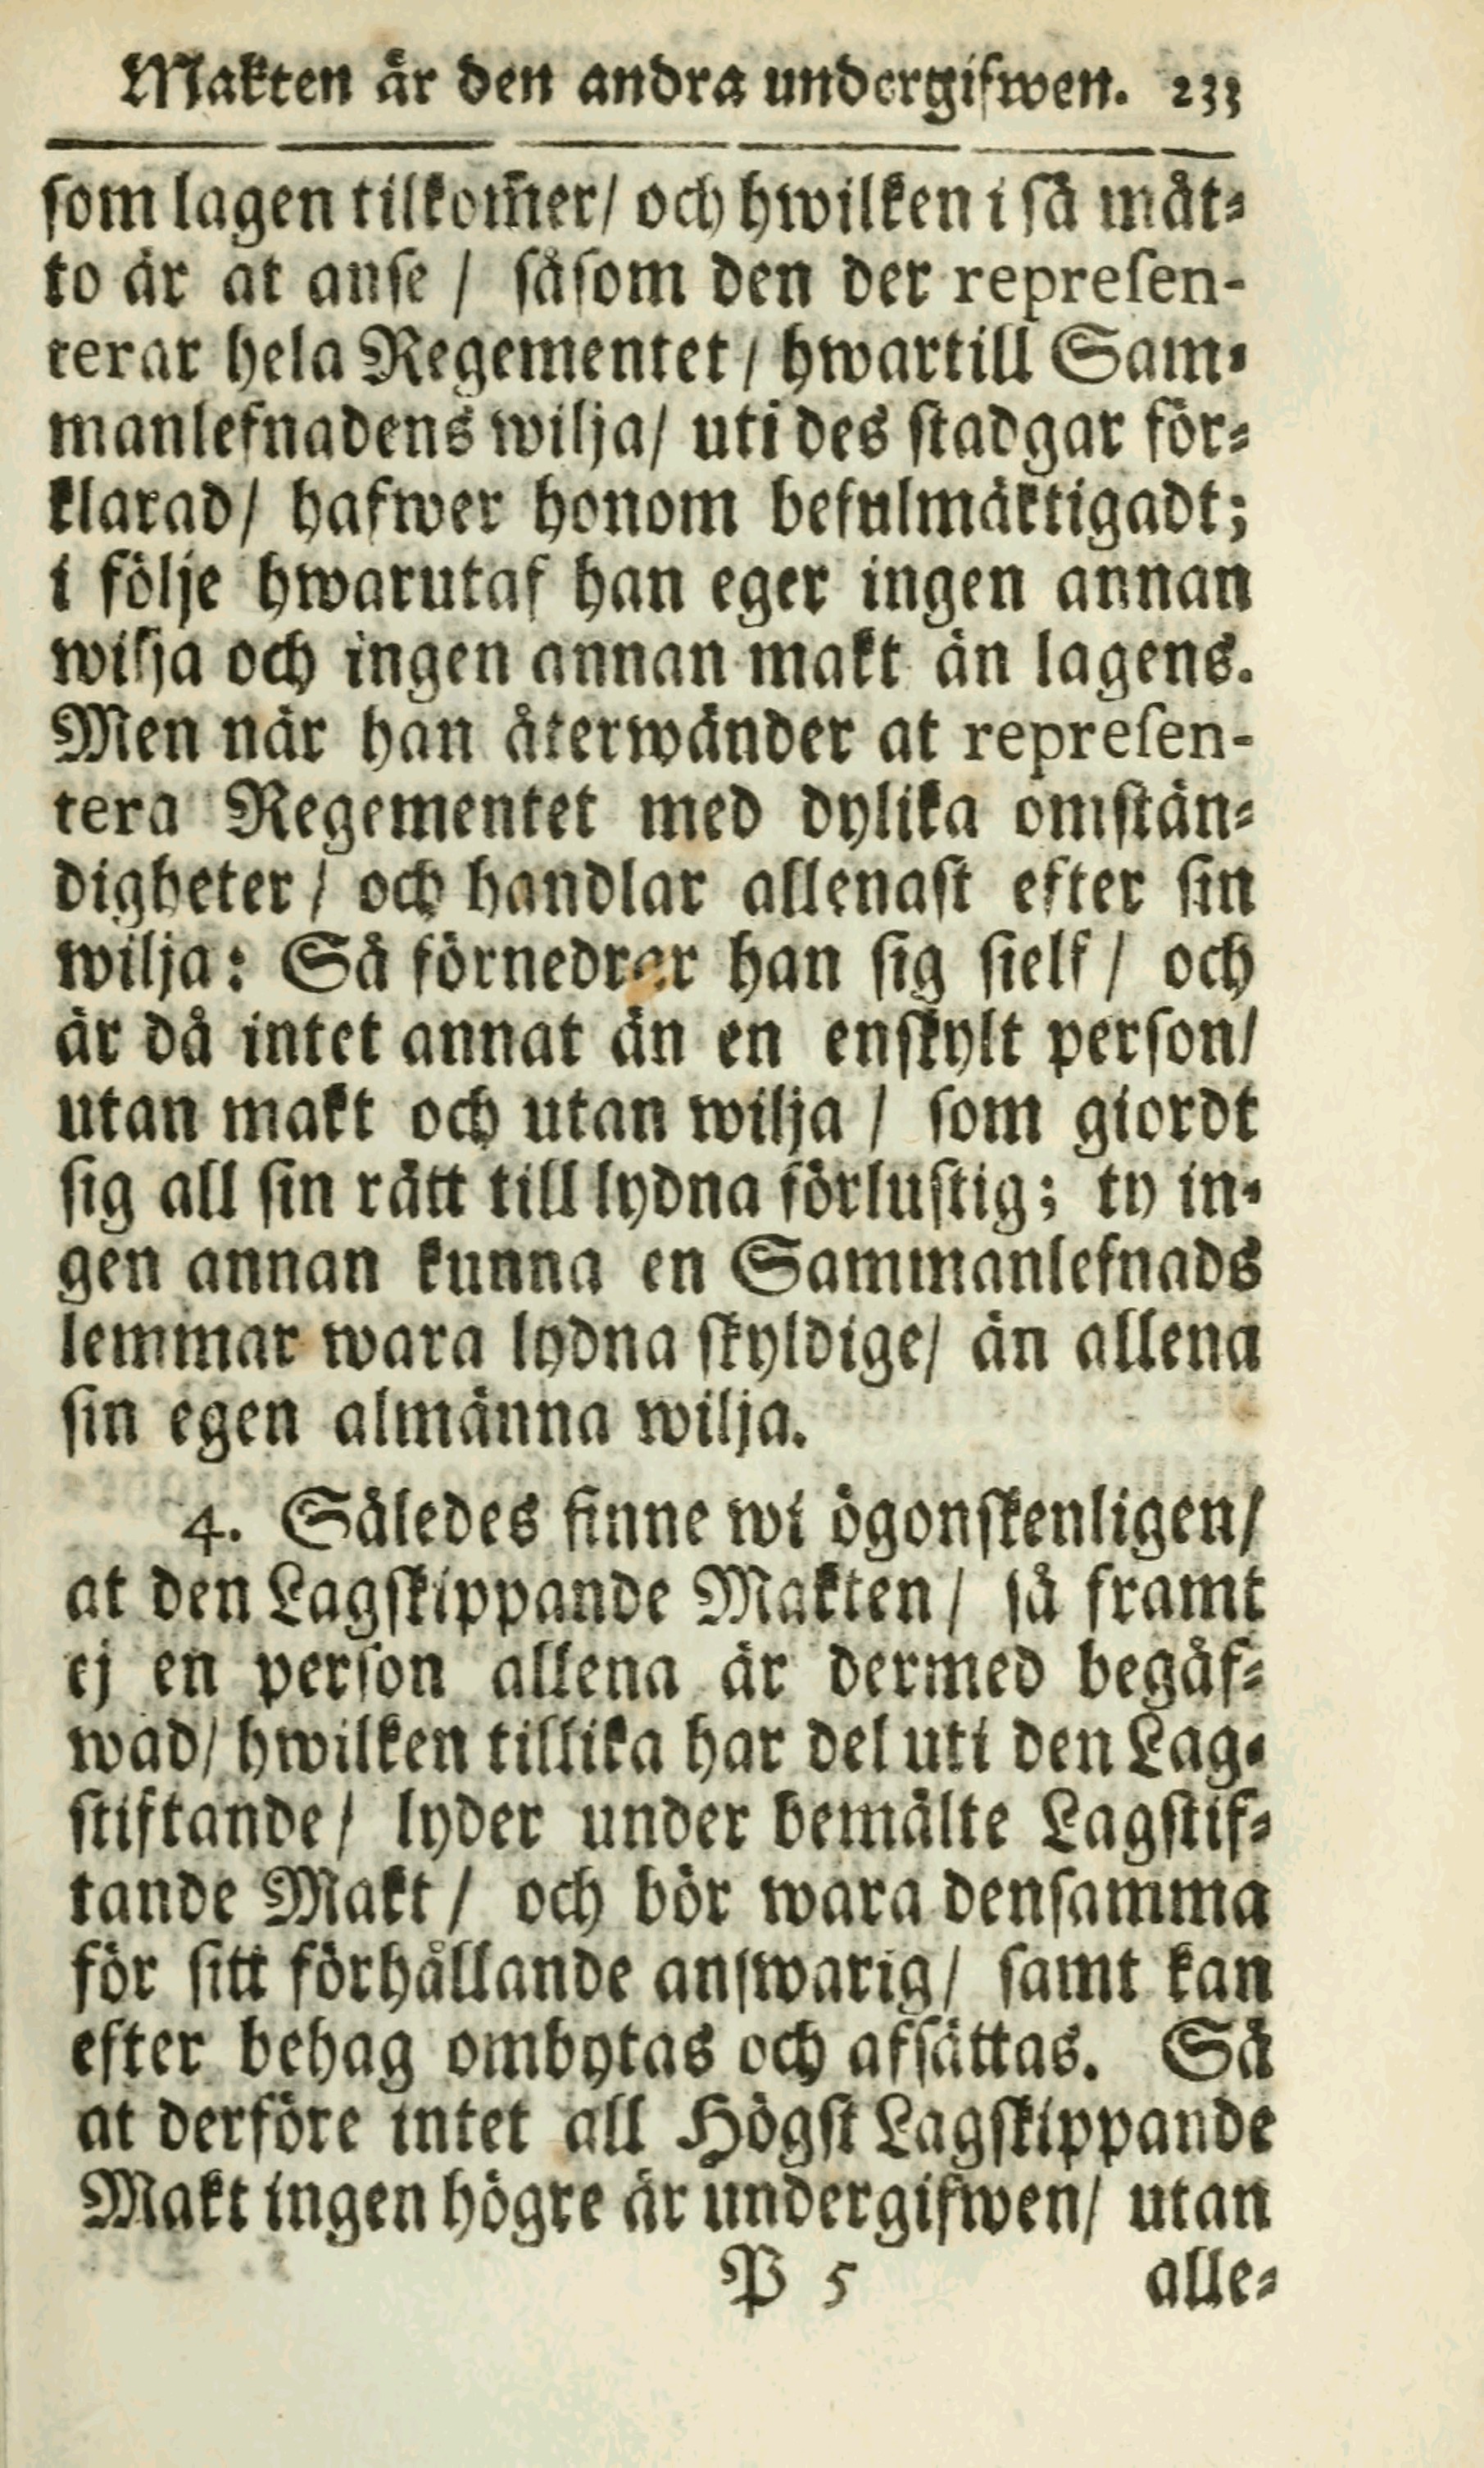 Makten är den andra undergifwen. 233
som lagen tilkom̃er/ och hwilken i så måt-
to är at anse / såsom den der represen-
terar hela Regementet / hwartill Sam-
manlefnadens wilja/ uti des stadgar för-
klarad/ hafwer honom befulmäktigadt;
i följe hwarutaf han eger ingen annan
wilja och ingen annan makt än lagens.
Men när han återwänder at represen-
tera Regementet med dylika omstän-
digheter / och handlar allenast efter sin
wilja: Så förnedrar han sig sielf / och
är då intet annat än en enskylt person/
utan makt och utan wilja / som giordt
sig all sin rätt till lydna förlustig; ty in-
gen annan kunna en Sammanlefnads
lemmar wara lydna skyldige/ än allena
sin egen almänna wilja.
4. Således finne wi ögonskenligen/
at den Lagskippande Makten / så framt
ej en person allena är dermed begåf-
wad/ hwilken tillika har del uti den Lag-
stiftande / lyder under bemälte Lagstif-
tande Makt / och bör wara densamma
för sitt förhållande answarig/ samt kan
efter behag ombytas och afsättas. Så
at derföre intet all Högst Lagskippande
Makt ingen högre är undergifwen/ utan
P 5 alle-